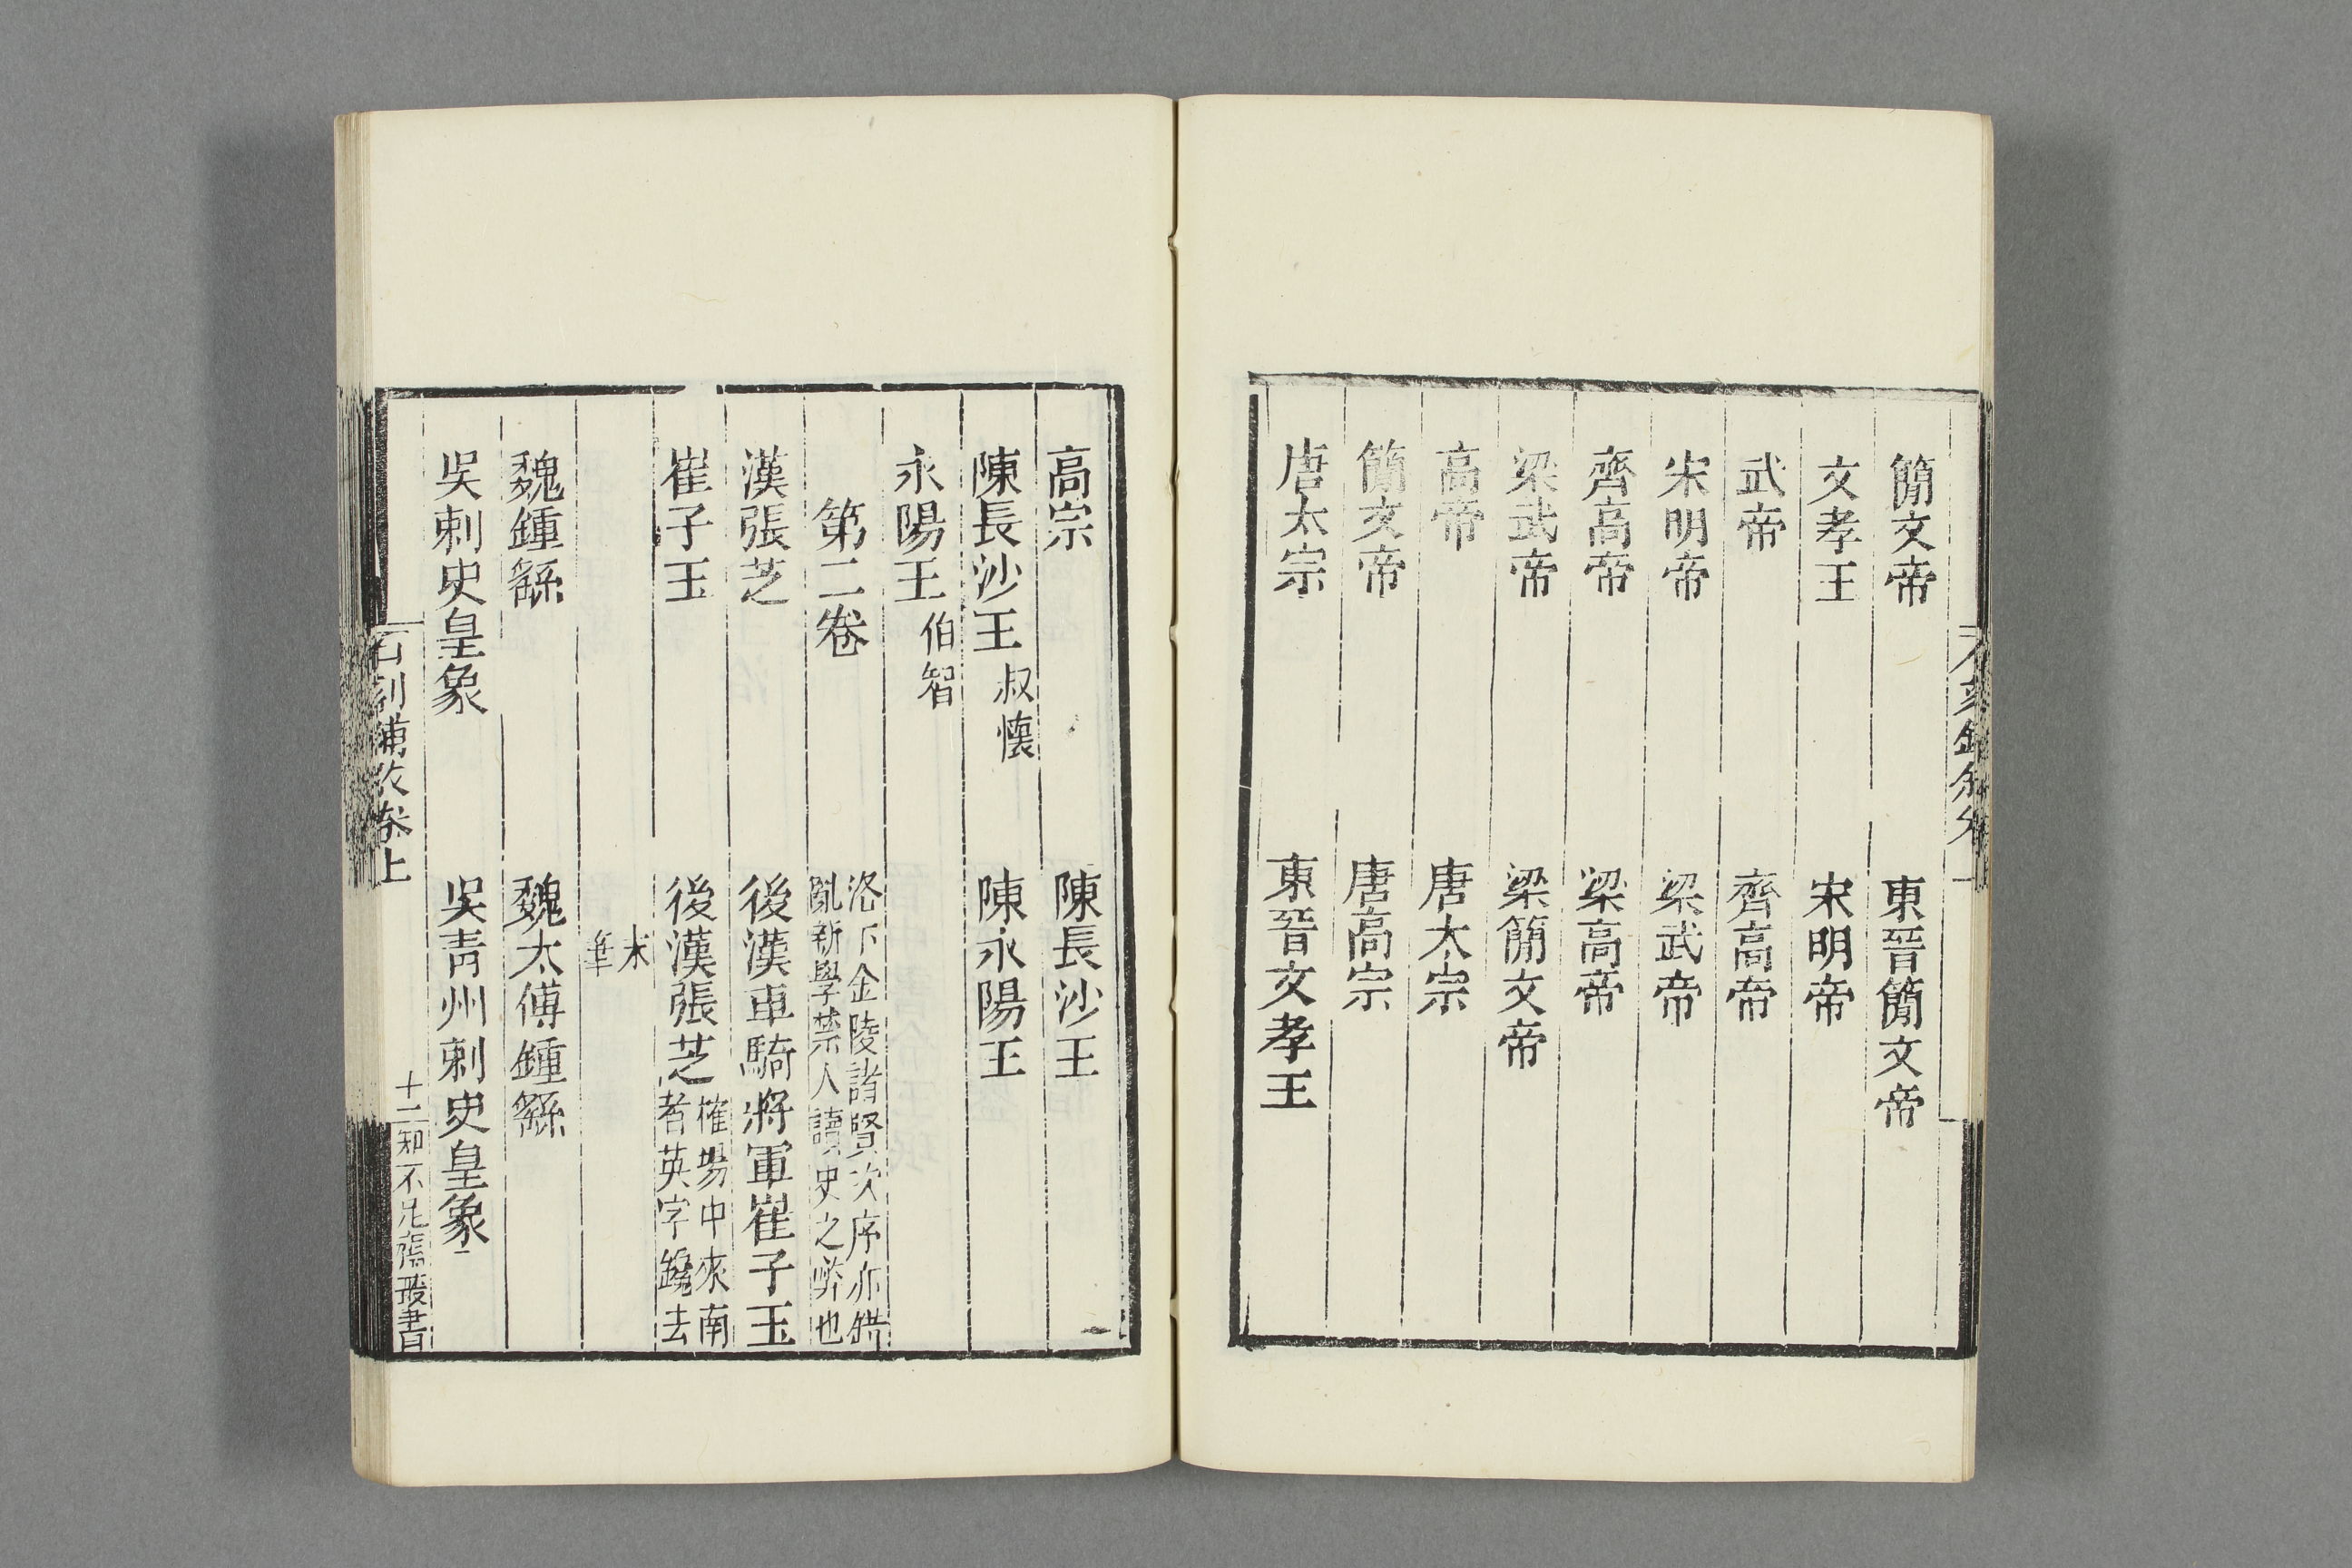 簡文帝　東晉簡文帝
文孝王　宋明帝
武帝　齊高帝
宋明帝　梁武帝
齊高帝　梁高帝
梁武帝　梁簡文帝
高帝　唐太宗
簡文帝　唐高宗
唐太宗　東晉文孝王
高宗　陳長沙王
陳長沙王叔懷　陳永陽王
永陽王伯智
第二卷　洛下金陵諸賢次序亦錯
亂新學禁人讀史之弊也
漢張芝　後漢車騎將軍崔子玉
崔子玉　後漢張芝榷場中來南
者英字鐫去
末
筆
魏鍾繇　魏太傅鍾繇
吳刺史皇象　吳青州刺史皇象
石刻鋪敘卷上　十二　知不足齋叢書